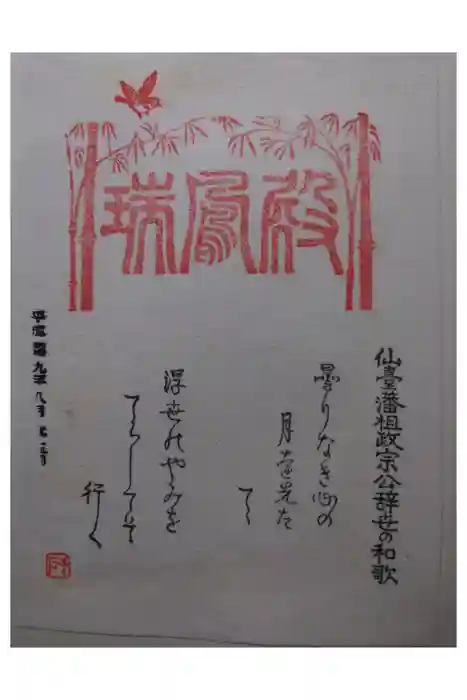 瑞鳳殿
仙臺藩祖政宗公辞世の和歌
曇りなき心の
月を先た
てゝ
浮世のやみを
てらしてそ
行く
平成 九年八月